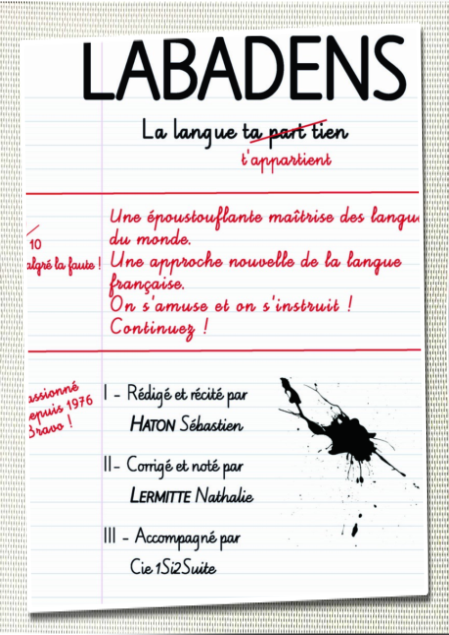 LABADENS
La langue ta part tien
t'appartient
Une époustouflante maîtrise des langu
du monde.
10
algré la faute !
Une approche nouvelle de la langue
française.
On s'amuse et on s'instruit !
Continuez !
assionné
epuis 1976
Bravo !
I - Rédigé et récité par
HATON Sébastien
II- Corrigé et noté par
LERMITTE Nathalie
III - Accompagné par
Cie 1Si2Suite